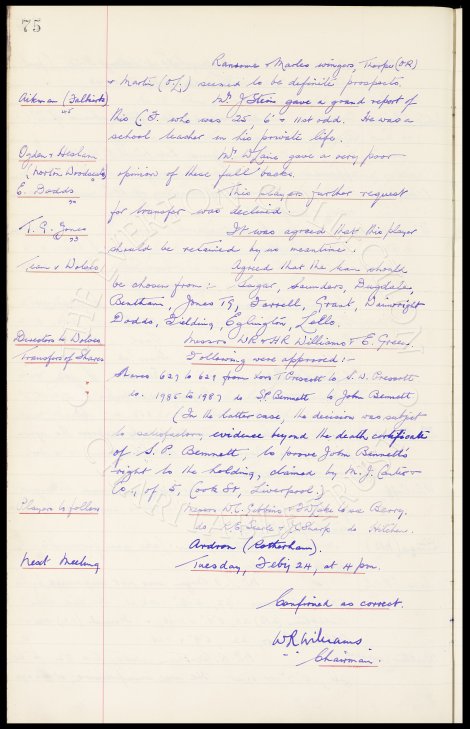 75
Ransome & Marles wingers, Thorpe (OR)
& Martin (O.L.) seemed to be definite prospects.
Aitkman (Falkirk)
v5
Mr. J. Stein gave a grand report of
this C.F. who was 25, 6' & 11st odd. He was a
school teacher in his private life.
Ogden & Hesham
(North.
Mr. W. Laine gave a very poor
opinion of these full backs.
E. Dodds
70
This players further request
for transfer was declined.
T. G. Jones
73
It was agreed that this player
should be retained by us meantime.
Team v Wolves
Agreed that the team should
be chosen from:- Sagar, Saunders, Dugdale,
Bentham, Jones TG, Farrell, Grant, Wainwright
Dodds, Fielding, Eglington, Lello.
Directors to Wolves
Messrs WR & HR Williams & E. Green.
Transfers of Shares
Following were approved:-
Shares 627 to 629 from Prescott to S. W. Prescott
do. 1985 to 1987 do S.P. Bennett to John Bennett
(In the latter case, the decision was subject
to satisfactory evidence beyond the death certificate
of S. P. Bennett, to prove John Bennett's
right to the holding, claimed by M. J. Cartier
Co., of 5, Cook St, Liverpool.)
Players to follow
Messrs W.C. Gibbins & to see Barry.
do R.E. Searle & Sharp do Hitchen.
Ardron (Rotherham).
Next Meeting
Tuesday, Feby 24, at 4 pm.
Confirmed as correct.
W R Williams
Chairman.